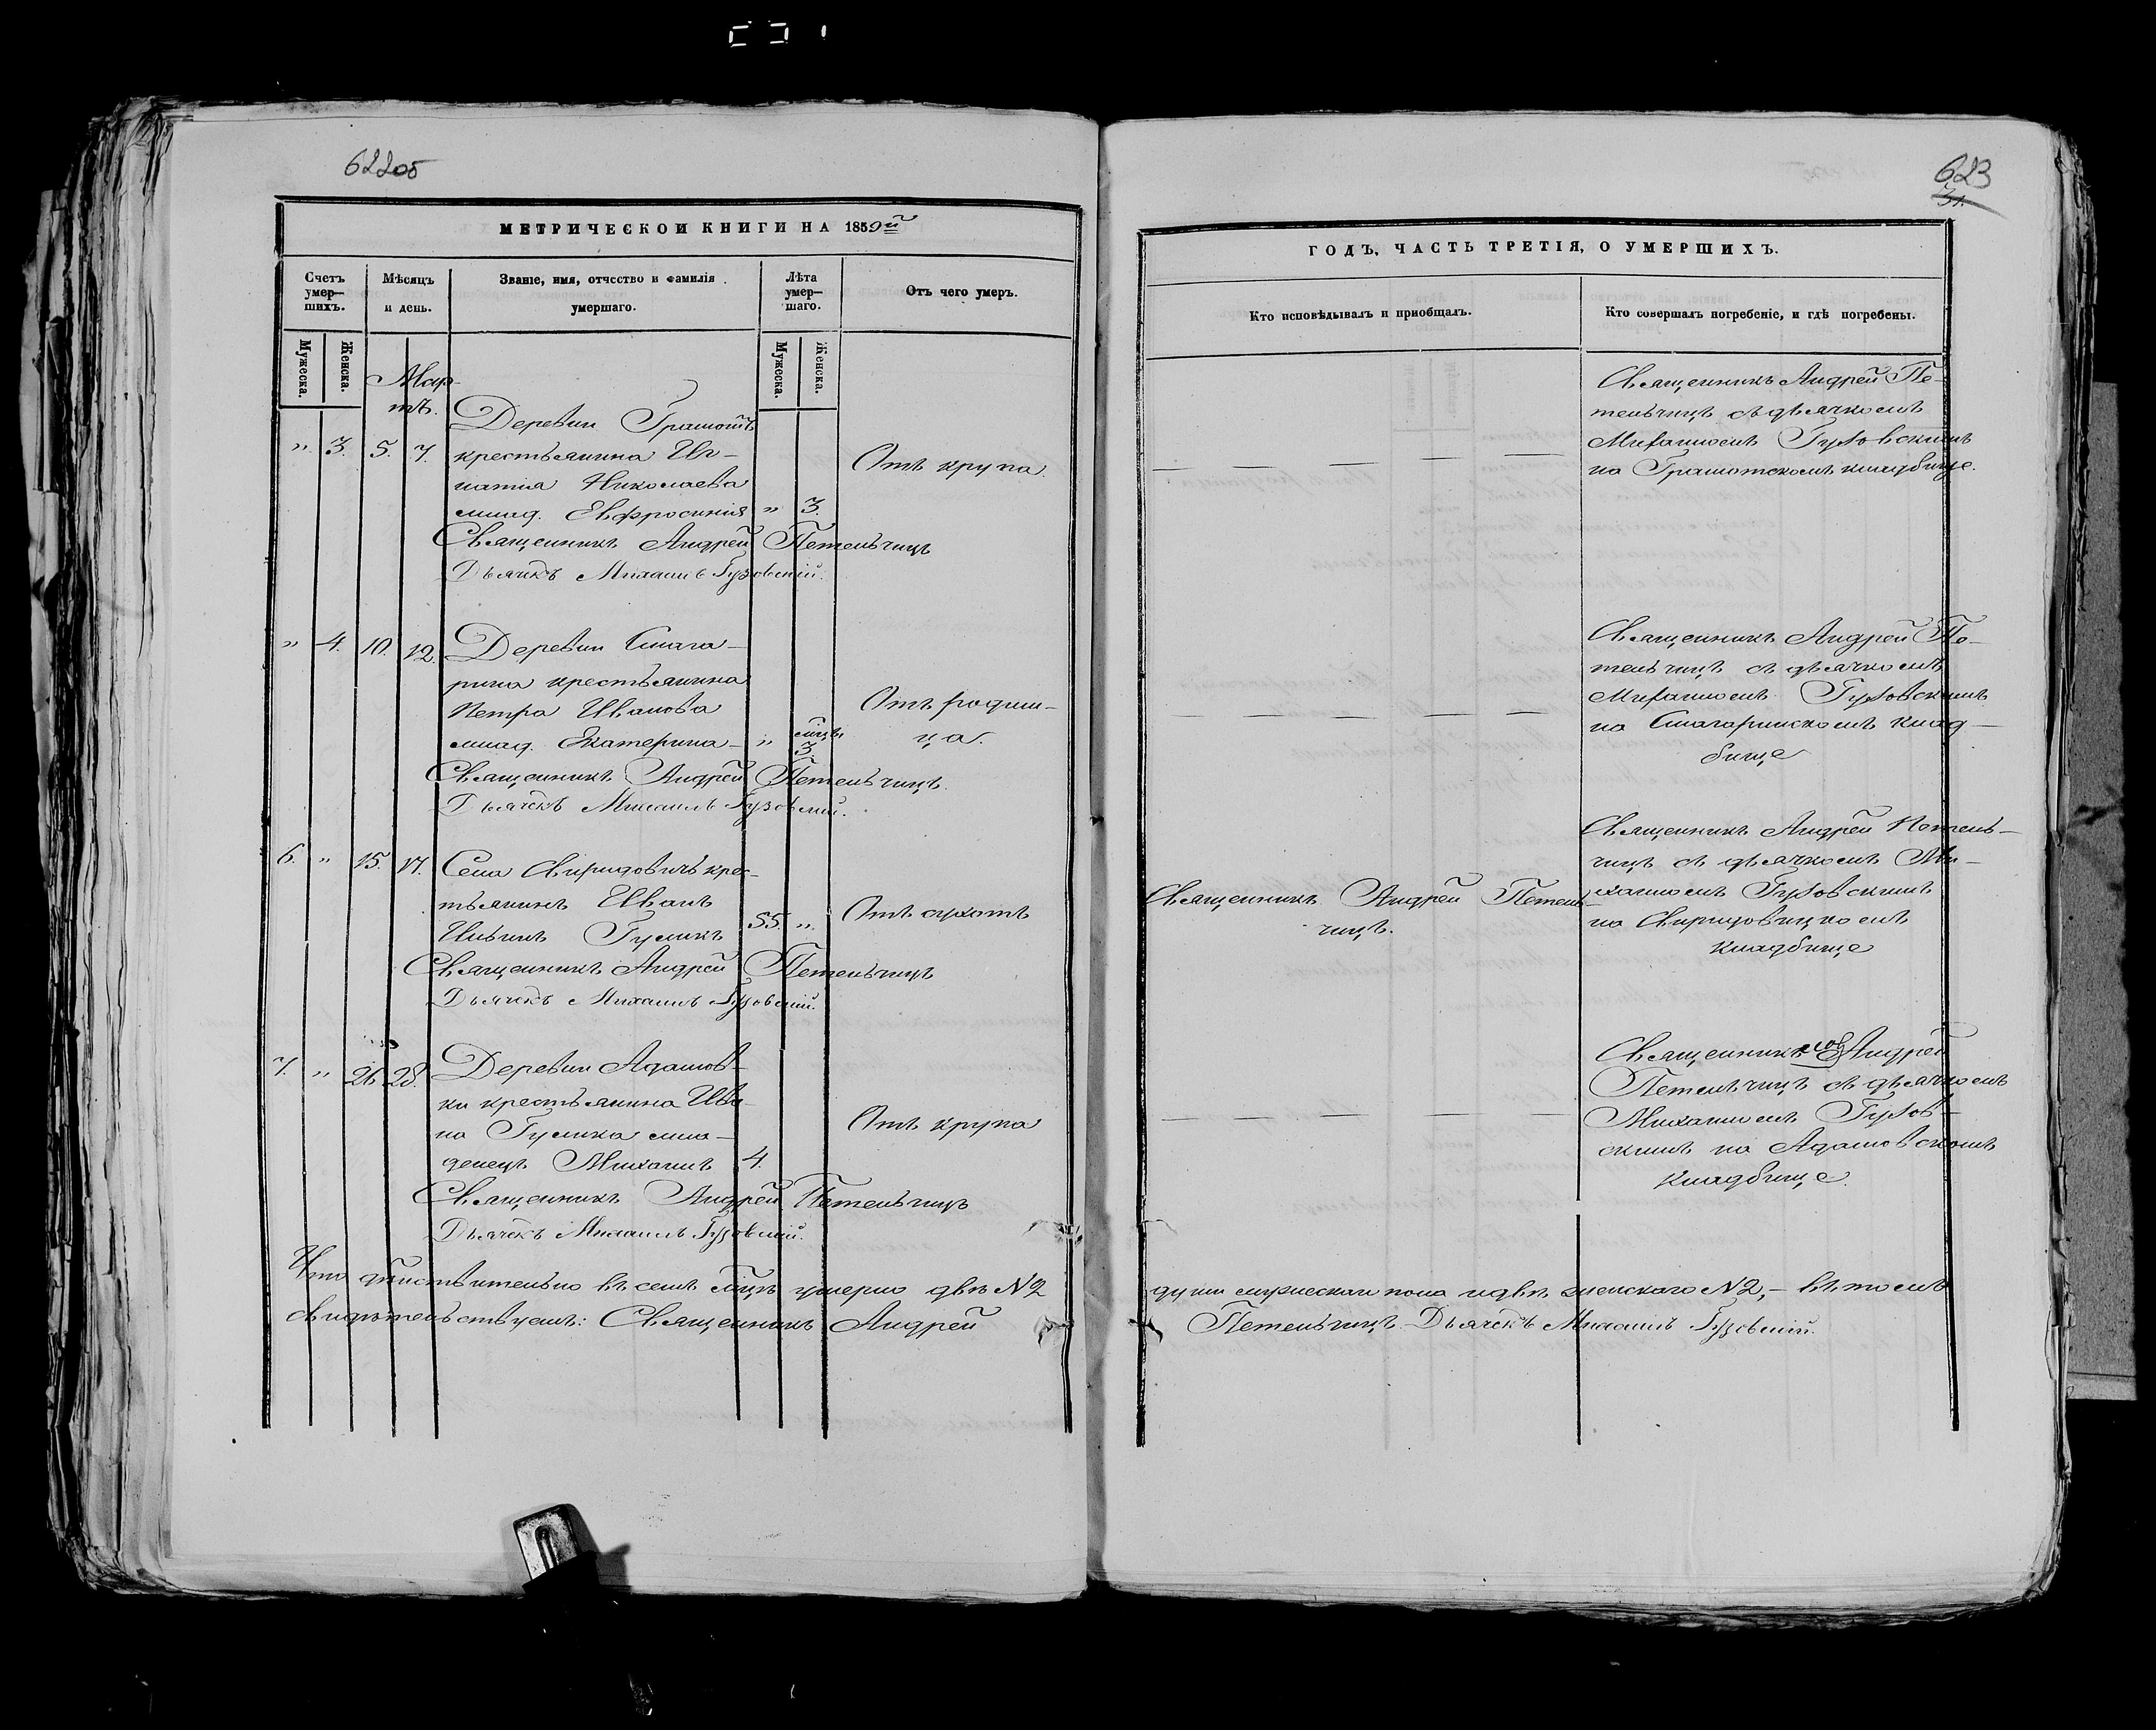 622об
МЕТРИЧЕСКОЙ КНИГИ НА 1859й
Счетъ умер— шихъ.
Мѣсяцъ и день.
Званіе, имя, отчество и фамилія умершаго.
Лѣта умер— шаго.
Отъ чего умеръ.
Мужеска.
Женска.
Мужеска.
Женска.
Мар-
тъ.
Деревни Грамотъ
" 3. 5. 7. крестьянина Иг-
Отъ крупа.
натія Николаева
млад. Евфросинія " 3.
Священникъ Андрей Петельчицъ
Дьячекъ Михаилъ Гузовскій.
" 4. 10. 12. Деревни Смага-
рина крестьянина
Петра Иванова
Отъ родим-
ца.
млад. Екатерина - " мцъ. 3
Священникъ Андрей Петельчицъ.
Дьячекъ Михаилъ Гузовскій.
6. " 15. 17. Села Свиридовичъ крес-
тьянинъ Иванъ
Отъ сухотъ
Гумикъ 55. ".
Священникъ Андрей Петельчицъ
Дьячекъ Михаилъ Гузовскій.
7. " 26 28. Деревни Адамов-
ки крестьянина Ива-
на Гумика мла-
Отъ крупа
денецъ Михаилъ 4.
Священникъ Андрей Петельчицъ
Дьячекъ Михаилъ Гузовскій.
Что дѣйствительно въ семъ мцѣ умерло двѣ N2
свидѣтельствуемъ: Священникъ Андрей
623
31.
ГОДЪ, ЧАСТЬ ТРЕТІЯ, О УМЕРШИХЪ.
Кто исповѣдывалъ и пріобщалъ.
Кто совершалъ погребеніе, и гдѣ погребены.
Священникъ Андрей Пе-
тельчицъ съ дьячкомъ
Михаиломъ Гузовскимъ
на Грамотскомъ кладбище.
Священникъ Андрей Пе-
тельчицъ съ дьячкомъ
Михаиломъ Гузовскимъ
на Смагаринскомъ клад-
бище
Священникъ Андрей Петель-
чицъ съ дьячкомъ Ми-
Священникъ Андрей Петель-
чицъ.
хаиломъ Гузовскимъ
на Свиридовицкомъ
кладбище
Священникъ Андрей
Петельчицъ съ дьячкомъ
Михаиломъ Гузов-
скимъ на Адамовскомъ
кладбище.
души мужескаго пола и двѣ женскаго N2, - въ томъ
Петельчицъ Дьячекъ Михаилъ Гузовскій.